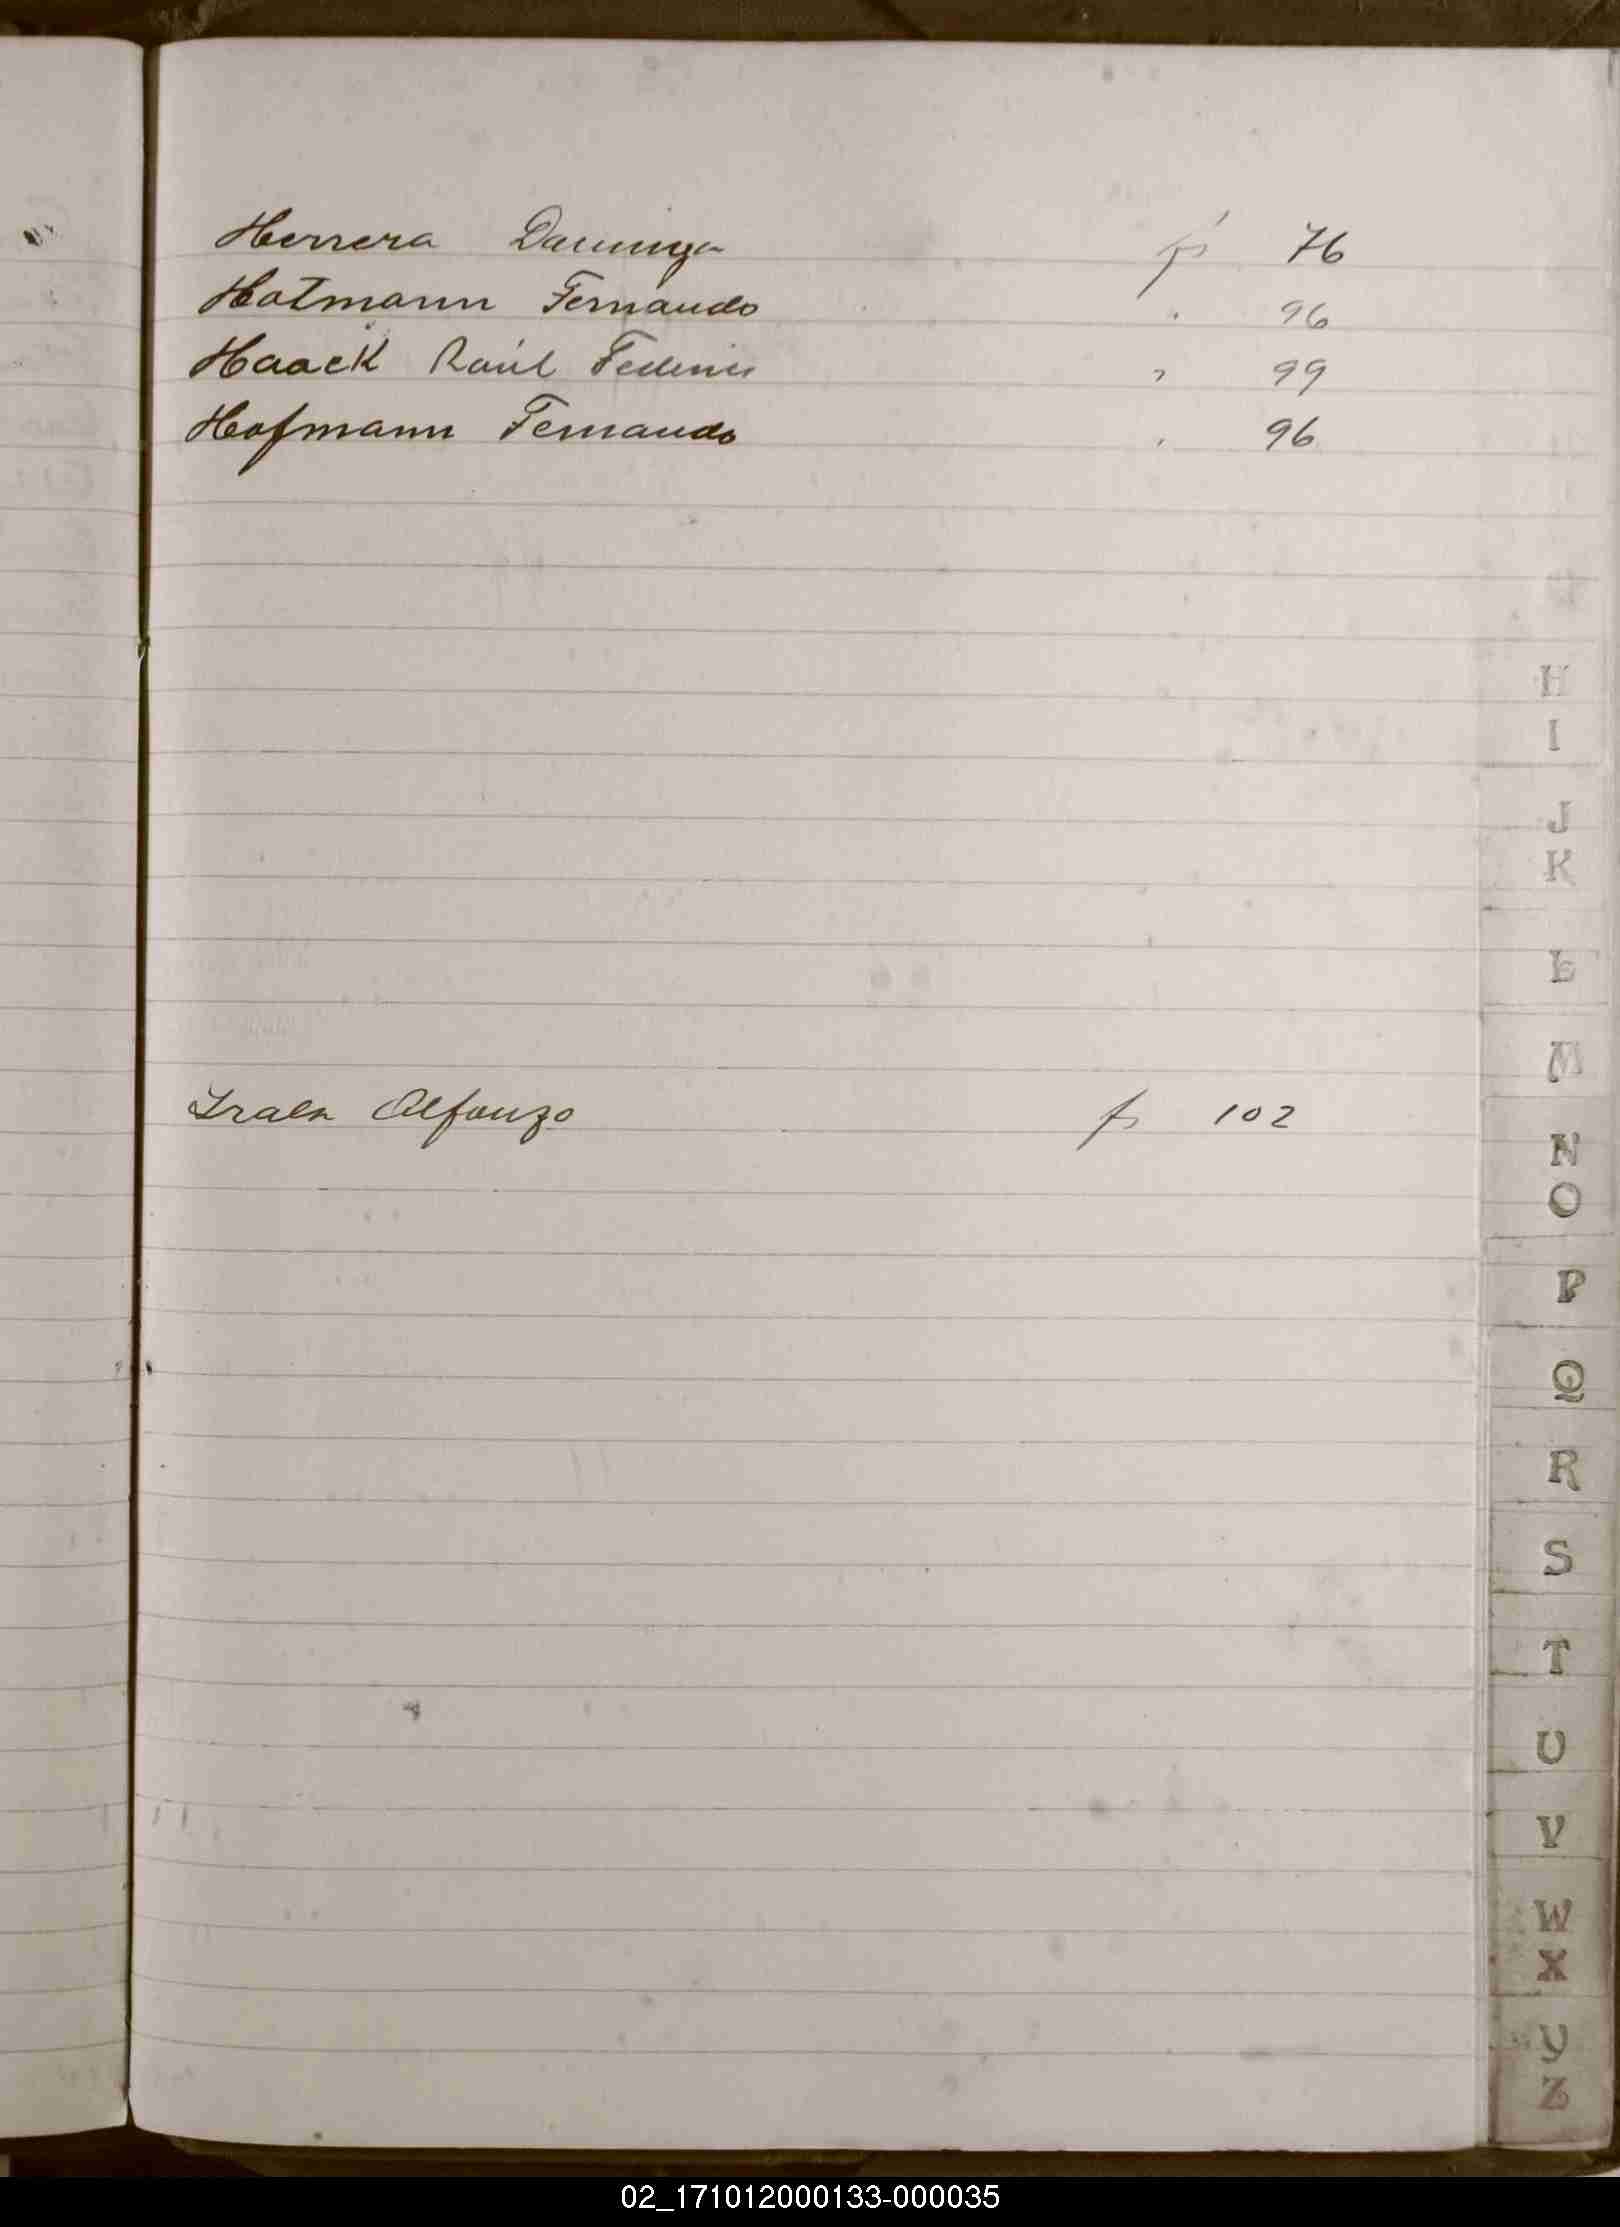 Herrera Dominga fs 76
Hotmann Fernando " 96
Haack Raúl Federico " 99
Hofmann Fernando " 96
Irala Alfonzo fs 102
H
I
J
K
L
M
N
O
P
Q
R
S
T
U
V
W
X
Y
Z
02_171012000133-000035